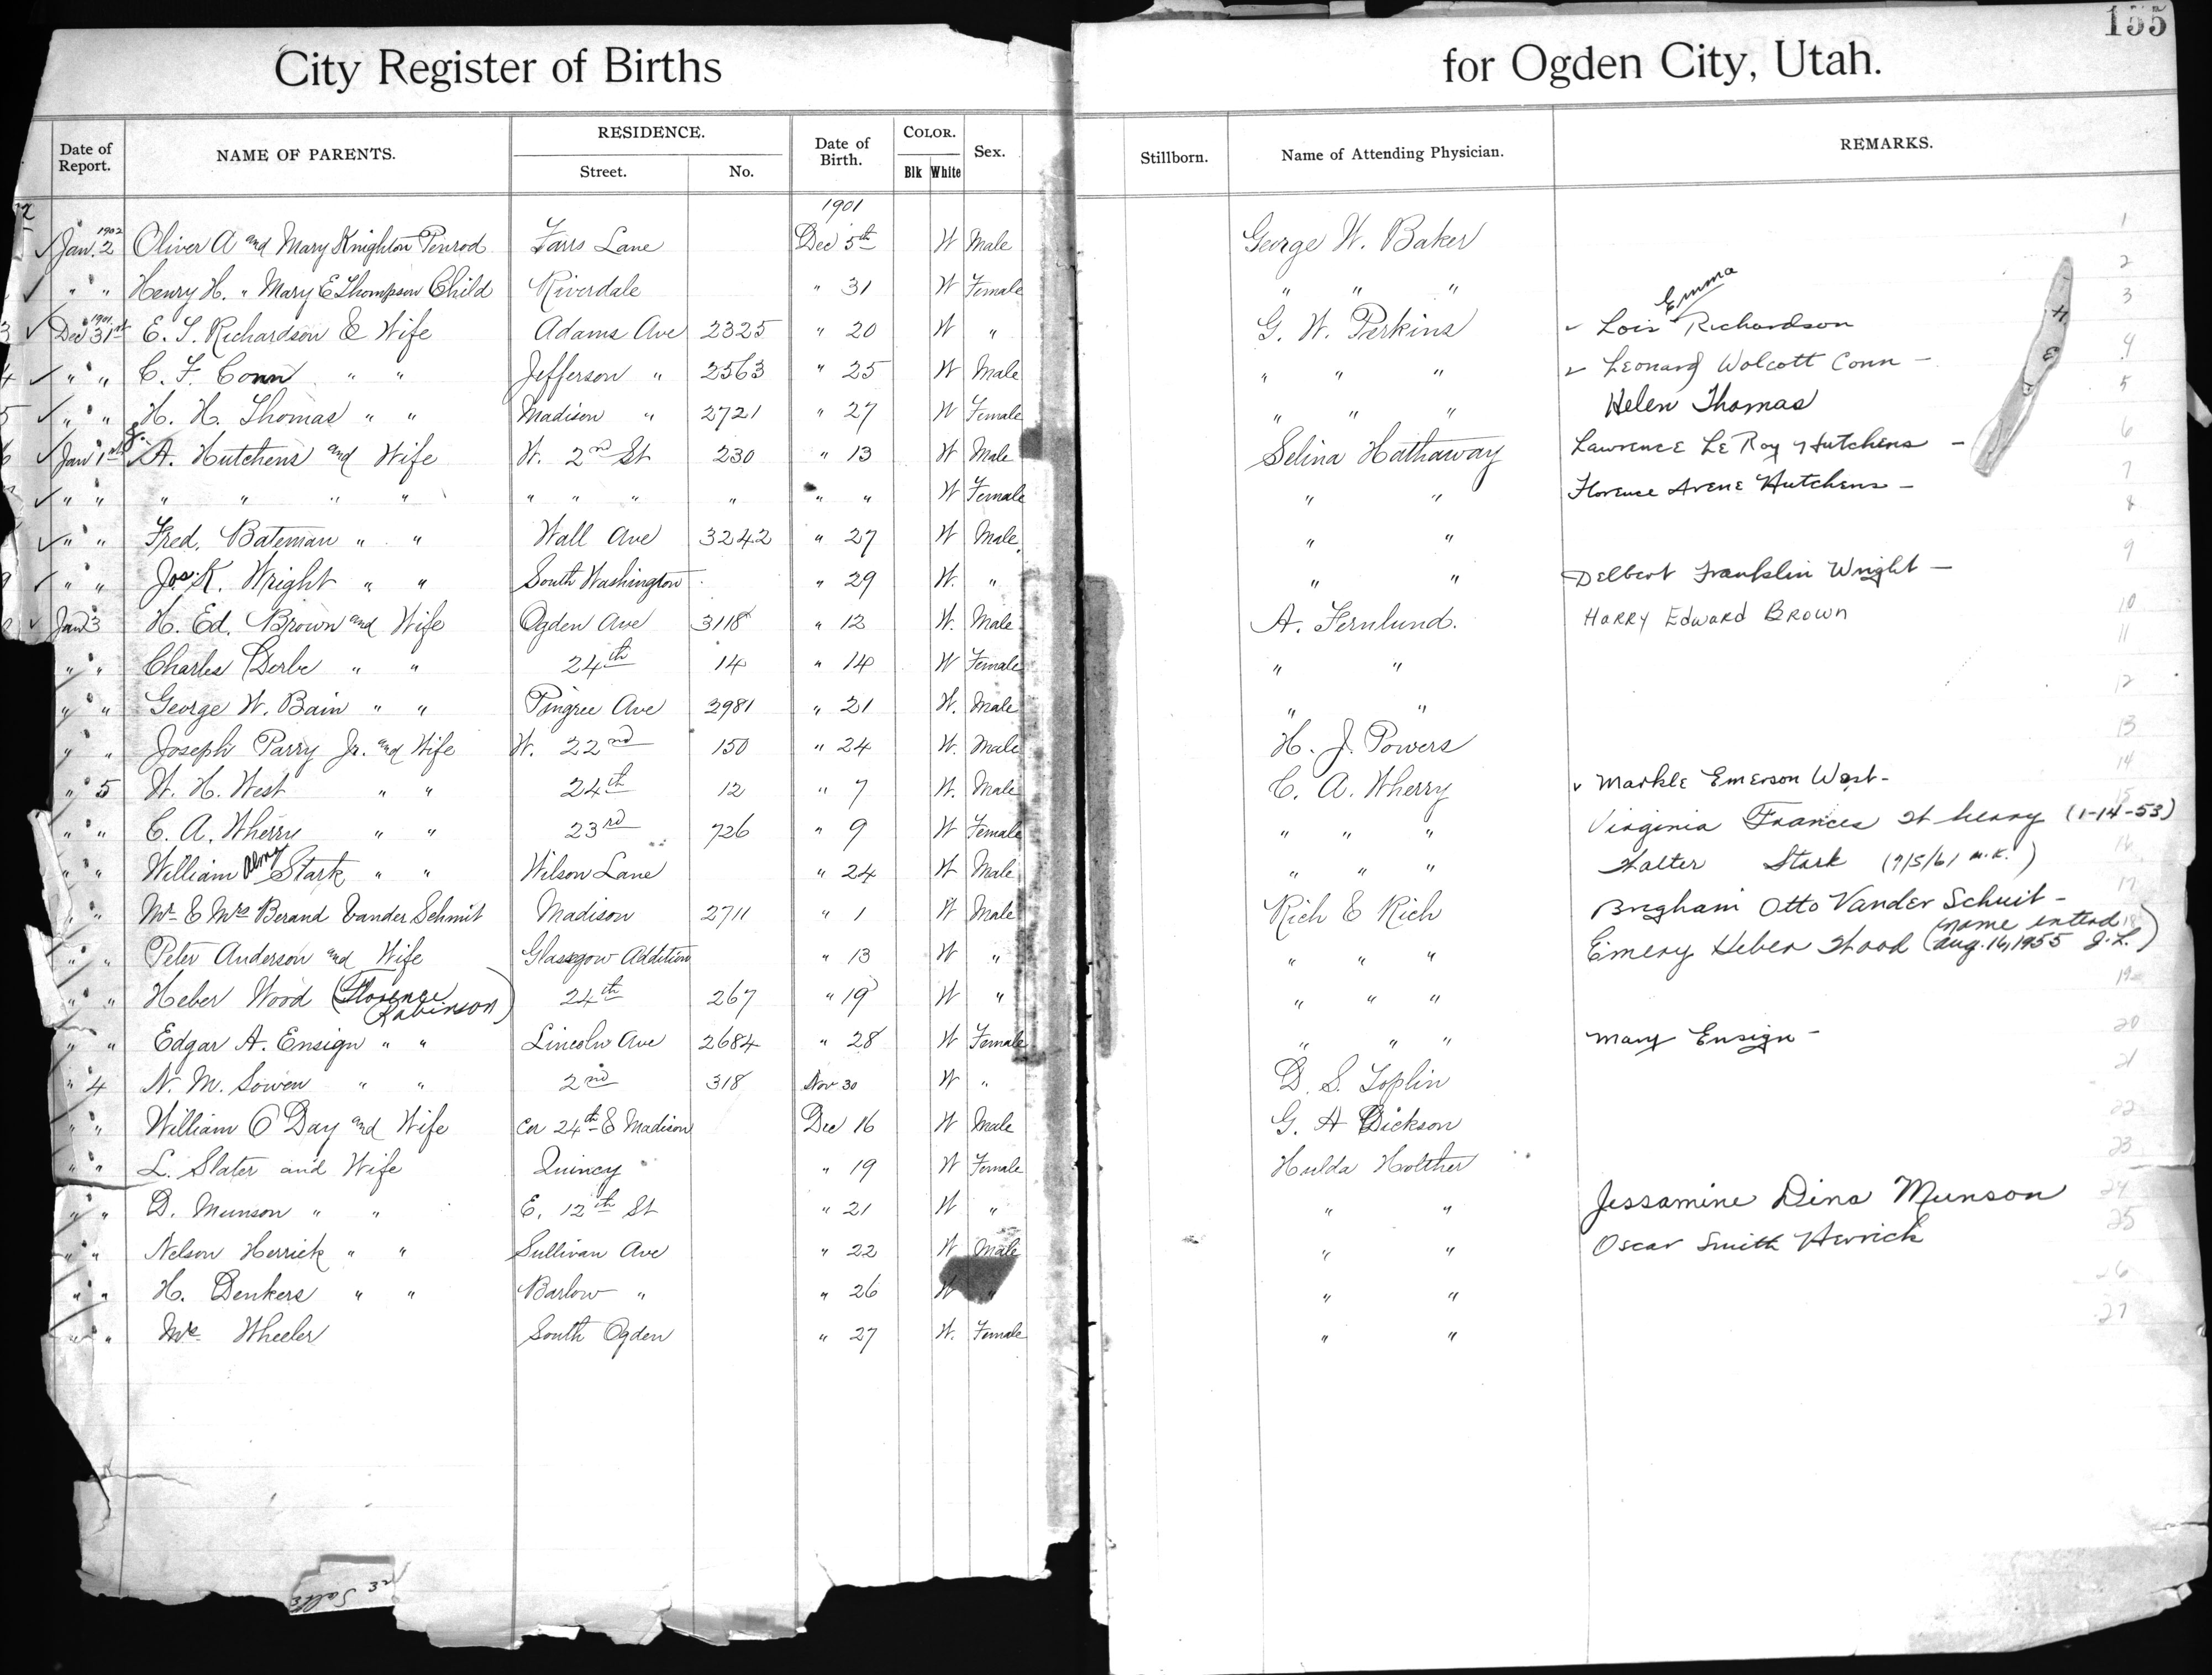 155
City Register of Births for Ogden City, Utah.
Date of Report. NAME OF PARENTS. RESIDENCE. Street. No. Date of Birth. COLOR. Blk White Sex. Stillborn. Name of Attending Physician. REMARKS.
1901
1902 Jan. 2 Oliver A and Mary Knighton Penrod Farrs Lane Dec 5th W Male George W. Baker 1
" " Henry H. " Mary E Thompson Child Riverdale " 31 W Female " " " 2
1901 Dec 31st E. T. Richardson & Wife Adams Ave 2325 " 20 W " G. W. Perkins Lois Emma Richardson 3
" " C. F. Conn " " Jefferson " 2563 " 25 W Male " " " Leonard Wolcott Conn - 4
" " H. H. Thomas " " Madison " 2721 " 27 W Female " " " Helen Thomas 5
Jan 1st A. Hutchens and Wife W. 2nd St 230 " 13 W Male Selina Hathaway Lawrence LeRoy Hutchens - 6
" " " " " " " " " " " " W Female " " Florence Arene Hutchens - 7
" " Fred. Bateman " " Wall Ave 3242 " 27 W Male " " 8
" " Jos. K. Wright " " South Washington " 29 W. " " " Delbert Franklin Wright - 9
Jan 3 H. Ed. Brown and Wife Ogden Ave 3118 " 12 W. Male A. Fernlund. HARRY Edward BROWN 10
" " Charles Derbe " " 24th 14 " 14 W Female " " 11
" " George W. Bain " " Pingree Ave 2981 " 21 W. Male " " 12
" " Joseph Parry Jr. and Wife W. 22nd 150 " 24 W. Male H. J. Powers 13
" 5 W. H. West " " 24th 12 " 7 W. Male C. A. Wherry Markle Emerson West - 14
" " C. A. Wherry " " 23rd 726 " 9 W Female " " " Virginia Frances Wherry (1-14-53) 15
" " William Alma Stark " " Wilson Lane " 24 W Male " " " Walter Stark (9/5/61 M.K.) 16
" " Mr & Mrs Berand Vander Schmit Madison 2711 " 1 W Male Rich & Rich Brigham Otto Vander Schuit - 17
" " Peter Anderson and Wife Glassgow Addition " 13 W " " " " Emery Heber Wood (name entrd Aug. 16, 1955 J.L.) 18
" " Heber Wood (Florence Robinson) 24th 267 " 19 W " " " " 19
" " Edgar A. Ensign " " Lincoln Ave 2684 " 28 W Female " " " Mary Ensign - 20
" 4 N. M. Sowen " " 2nd 318 Nov 30 W " D. S. Joplin 21
" " William O Day and Wife Cor 24th & Madison Dec 16 W Male G. A Dickson 22
" " L. Slater and Wife Quincy " 19 W Female Hulda Holther 23
" " D. Munson " " E. 12th St " 21 W " " " Jessamine Dina Munson 24
" " Nelson Herrick " " Sullivan Ave " 22 W Male " " Oscar Smith Herrick 25
" " H. Denkers " " Barlow " " 26 W " " " 26
" " Mr. Wheeler South Ogden " 27 W. Female " " 27